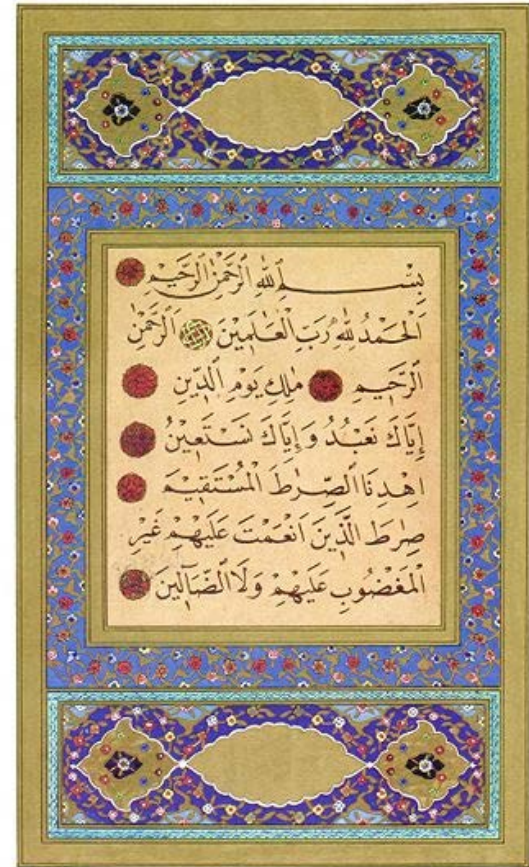 بِسْمِ اللهِ الرَّحْمٰنِ الرَّحِيمِ
اَلْحَمْدُ لِلهِ رَبِّ الْعَالَمِينَ اَلرَّحْمٰنِ
الرَّحِيمِ مَالِكِ يَوْمِ الدِّينِ
إِيَّاكَ نَعْبُدُ وَإِيَّاكَ نَسْتَعِينُ
اِهْدِنَا الصِّرَاطَ الْمُسْتَقِيمَ
صِرَاطَ الَّذِينَ اَنْعَمْتَ عَلَيْهِمْ غَيْرِ
الْمَغْضُوبِ عَلَيْهِمْ وَلَا الضَّالِّينَ